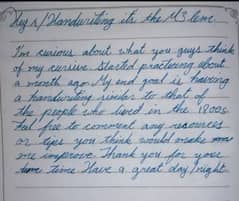 Hey r/Handwriting its the M3 leme
I'm curious about what you guys think
of my cursive. Started practicing about
a month ago. My end goal is having
a handwriting similer to that of
the people who lived in the 1800s.
Feel free to comment any resources
or tips you think would make
me improve Thank you for your
time Have a great day/night